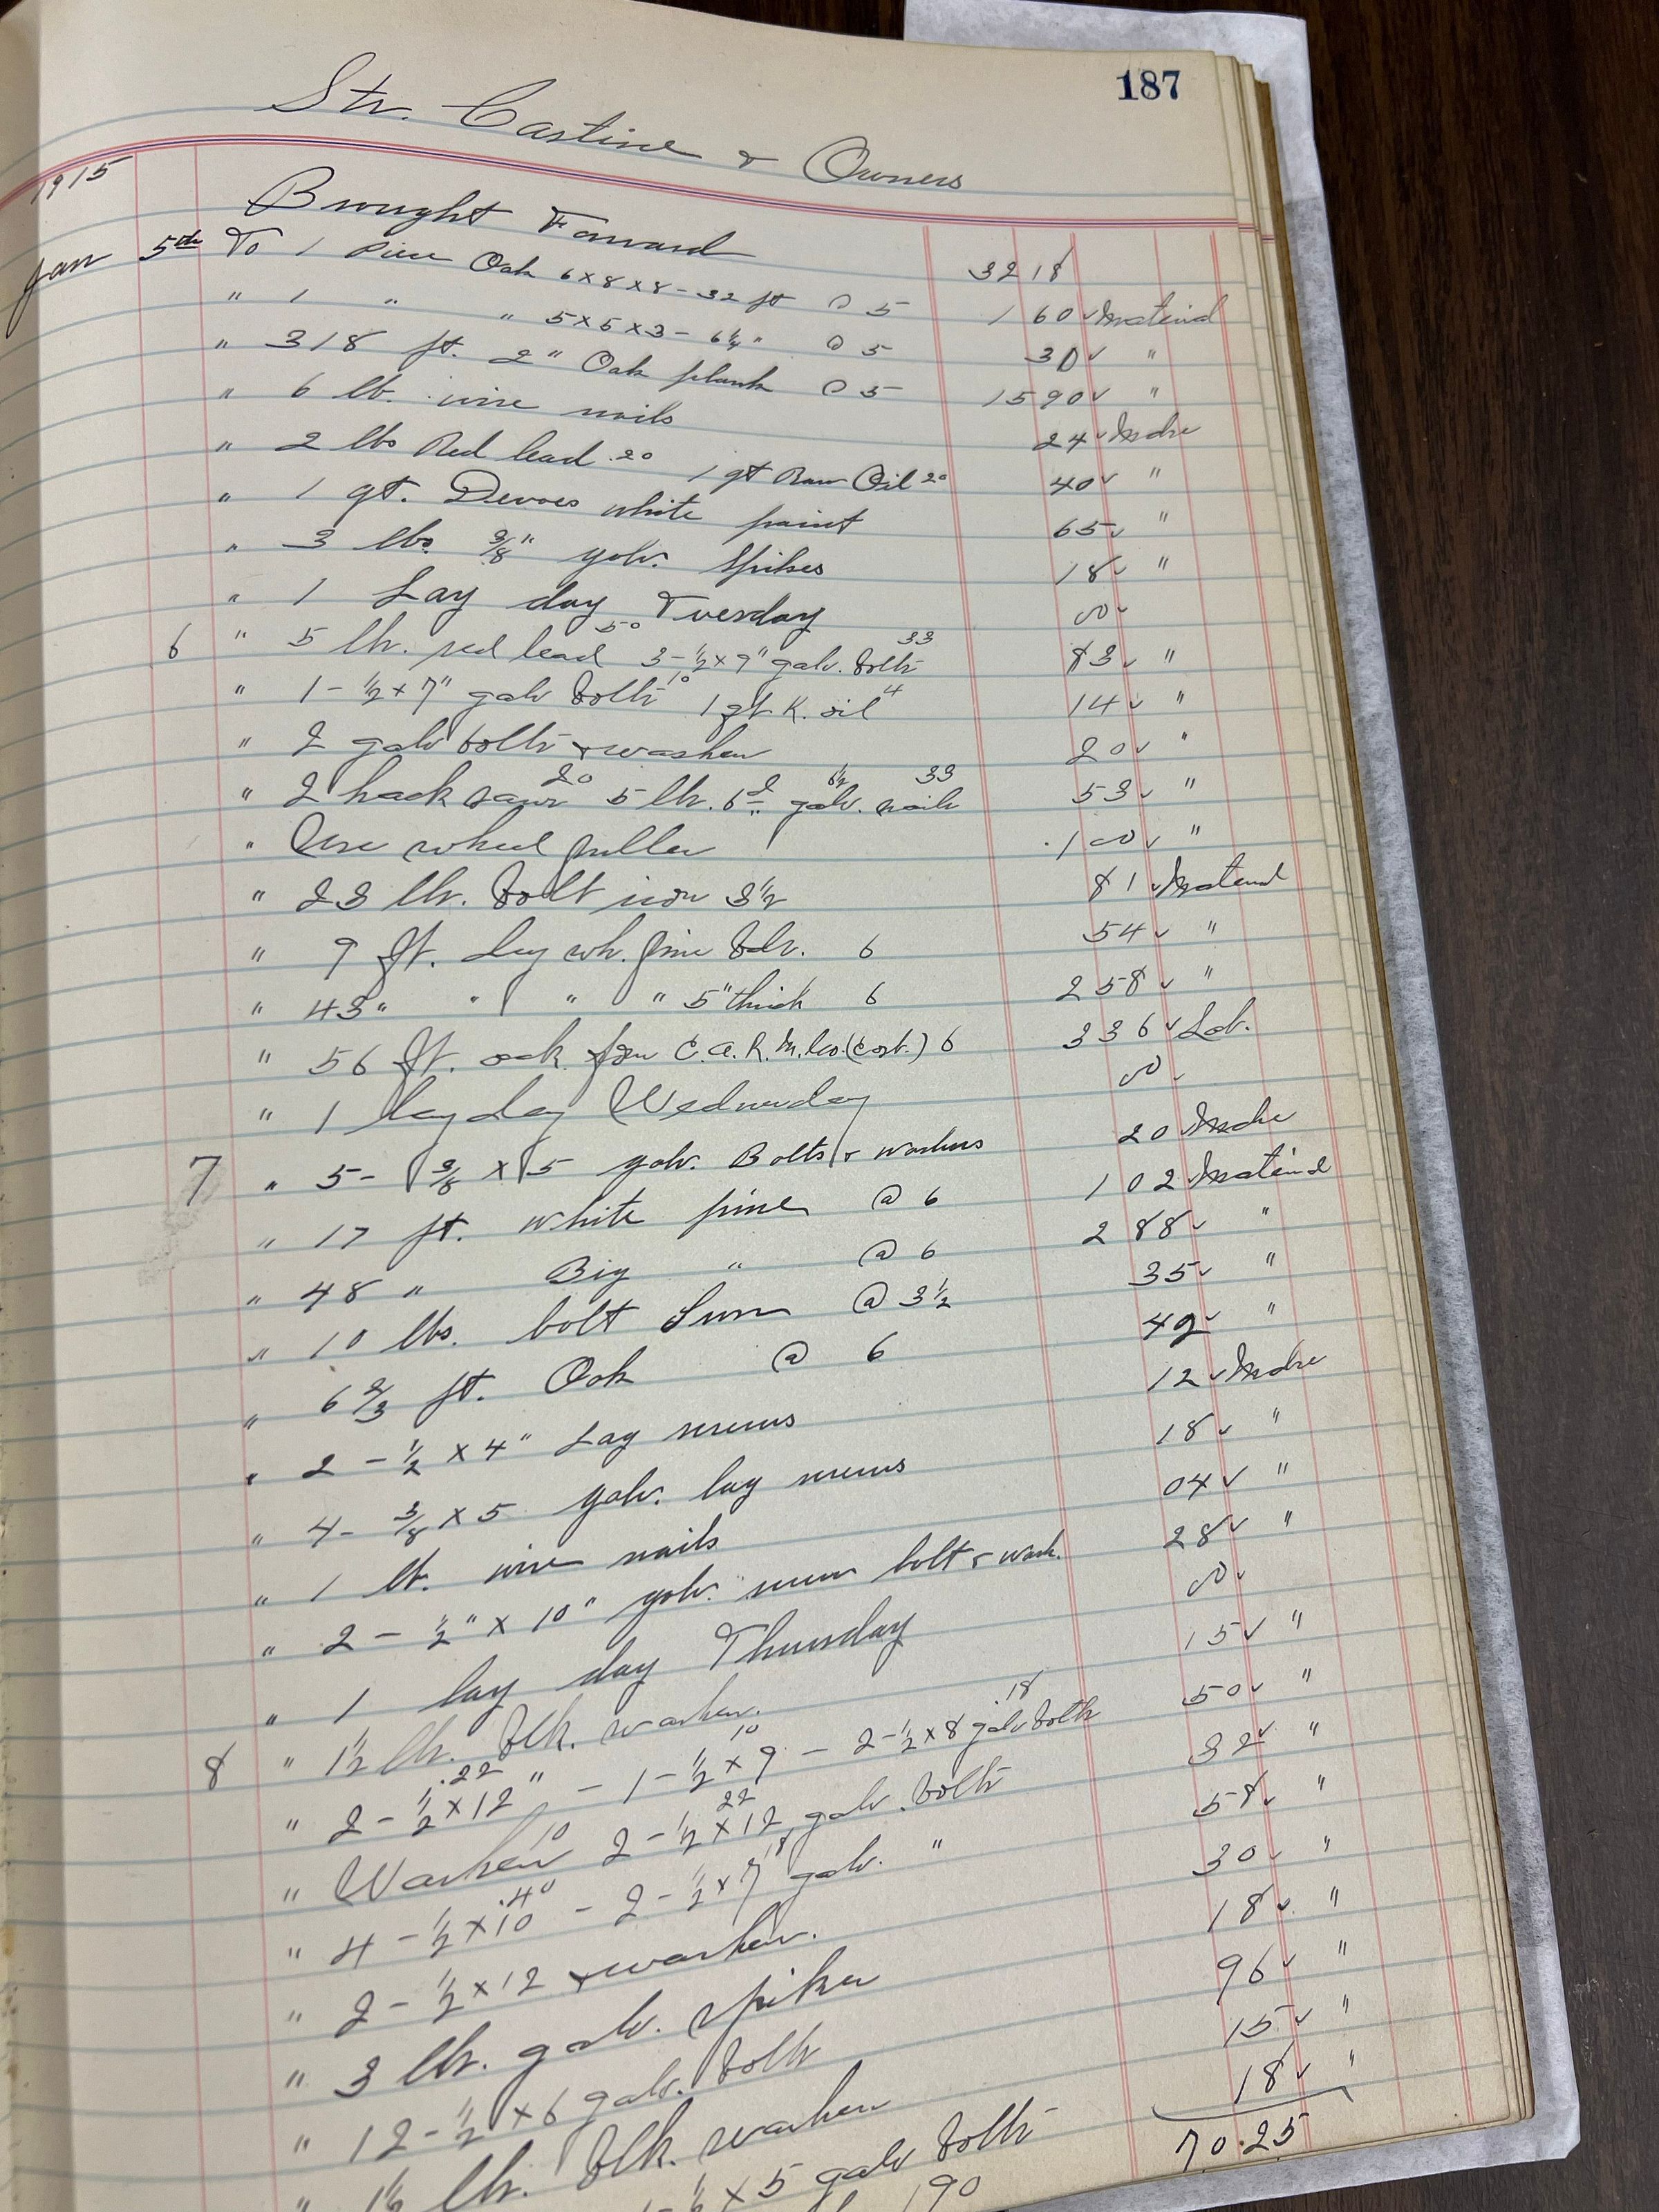 187
Str. Castine & Owners
1915
Brought Forward 3218
Jan 5th To 1 Piece Oak 6x8x8-32 ft @ 5 160 ✓ Material
" 1 " " 5x5x3-6¼ " @ 5 30 ✓ "
" 318 ft. 2" Oak plank @ 5 1590 ✓ "
" 6 lb. wire nails 24 ✓ Mdse
" 2 lbs Red lead .20 1 qt Raw Oil 20 40 ✓ "
" 1 qt. Devoes white paint 65 ✓ "
" 3 lbs. 3/8" galv. spikes 18 ✓ "
" 1 Lay day Tuesday 00 ✓
6 " 5 lb. red lead 50 3-½x9" galv. bolts 33 83 ✓ "
" 1-½x7" galv bolts 10 1 qt K. oil 4 14 ✓ "
" 2 galv bolts & washers 20 ✓ "
" 2 hack saws 20 5 lb. 6d galv. nails 6½ 33 53 ✓ "
" Use wheel puller .100 ✓ "
" 23 lb. bolt iron 3½ 81 ✓ Material
" 9 ft. dry wh. pine bds. 6 54 ✓ "
" 43 " " " " 5" thick 6 258 ✓ "
" 56 ft. oak from C.A.R.M.Co. (cost.) 6 336 ✓ Lab.
" 1 lay day Wednesday 00 ✓
7 " 5- 3/8 x 5 galv. Bolts & washers 20 ✓ Mdse
" 17 ft. white pine @ 6 102 ✓ Material
" 48 " Big " @ 6 288 ✓ "
" 10 lbs. bolt Iron @ 3½ 35 ✓ "
" 6 2/3 ft. Oak @ 6 40 ✓ "
" 2 - ½ x 4" Lag screws 12 ✓ Mdse
" 4- 3/8 x 5 galv. lag screws 18 ✓ "
" 1 lb. wire nails 04 ✓ "
" 2 - ½" x 10" galv. screw bolt & wash. 28 ✓ "
" 1 lay day Thursday 00 ✓
8 " 1½ lb. blk. washers. 15 ✓ "
" 2-½x12" .22 - 1-½x9 10 - 2-½x8 galv bolts .18 50 ✓ "
" Washers 10 2-½x12 galv. bolts 22 32 ✓ "
" 4-½x10 .40 - 2-½x7 galv. " 18 58 ✓ "
" 2-½x12 & washers. 30 ✓ "
" 3 lb. galv. spikes 18 ✓ "
" 12-½x6 galv. bolts 96 ✓ "
" 1½ lb. blk. washers 15 ✓ "
½x5 galv bolts 18 ✓ "
190 70.25